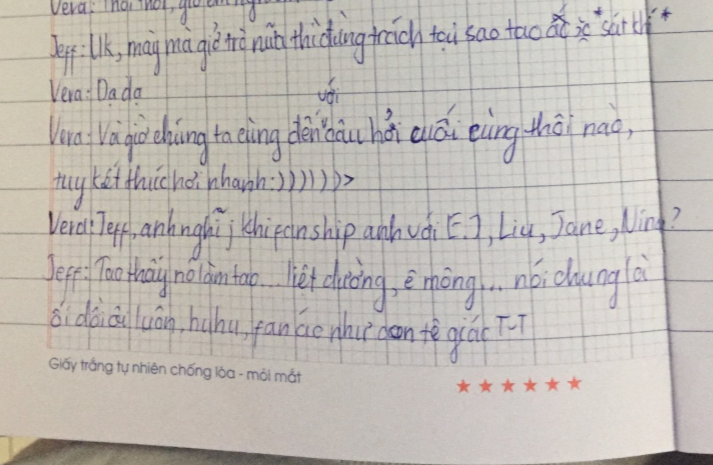 Vera: Thôi thôi, giờ em
Jeff: Uk, mày mà giở trò nữa thì đừng trách tại sao tao ác *sát khí*
Vera: Dạ dạ
Vera: Và giờ chúng ta cùng đến với câu hỏi cuối cùng thôi nào,
tuy kết thúc hơi nhanh:))))))>
Vera: Jeff, anh nghĩ j khi fan ship anh với E.J, Liu, Jane, Nina?
Jeff: Tao thấy nó làm tao... liệt dường, ê mông... nói chung là
ôi dồi ôi luôn, huhu, fan ác như con tê giác T-T
Giấy trắng tự nhiên chống lóa - mỏi mắt